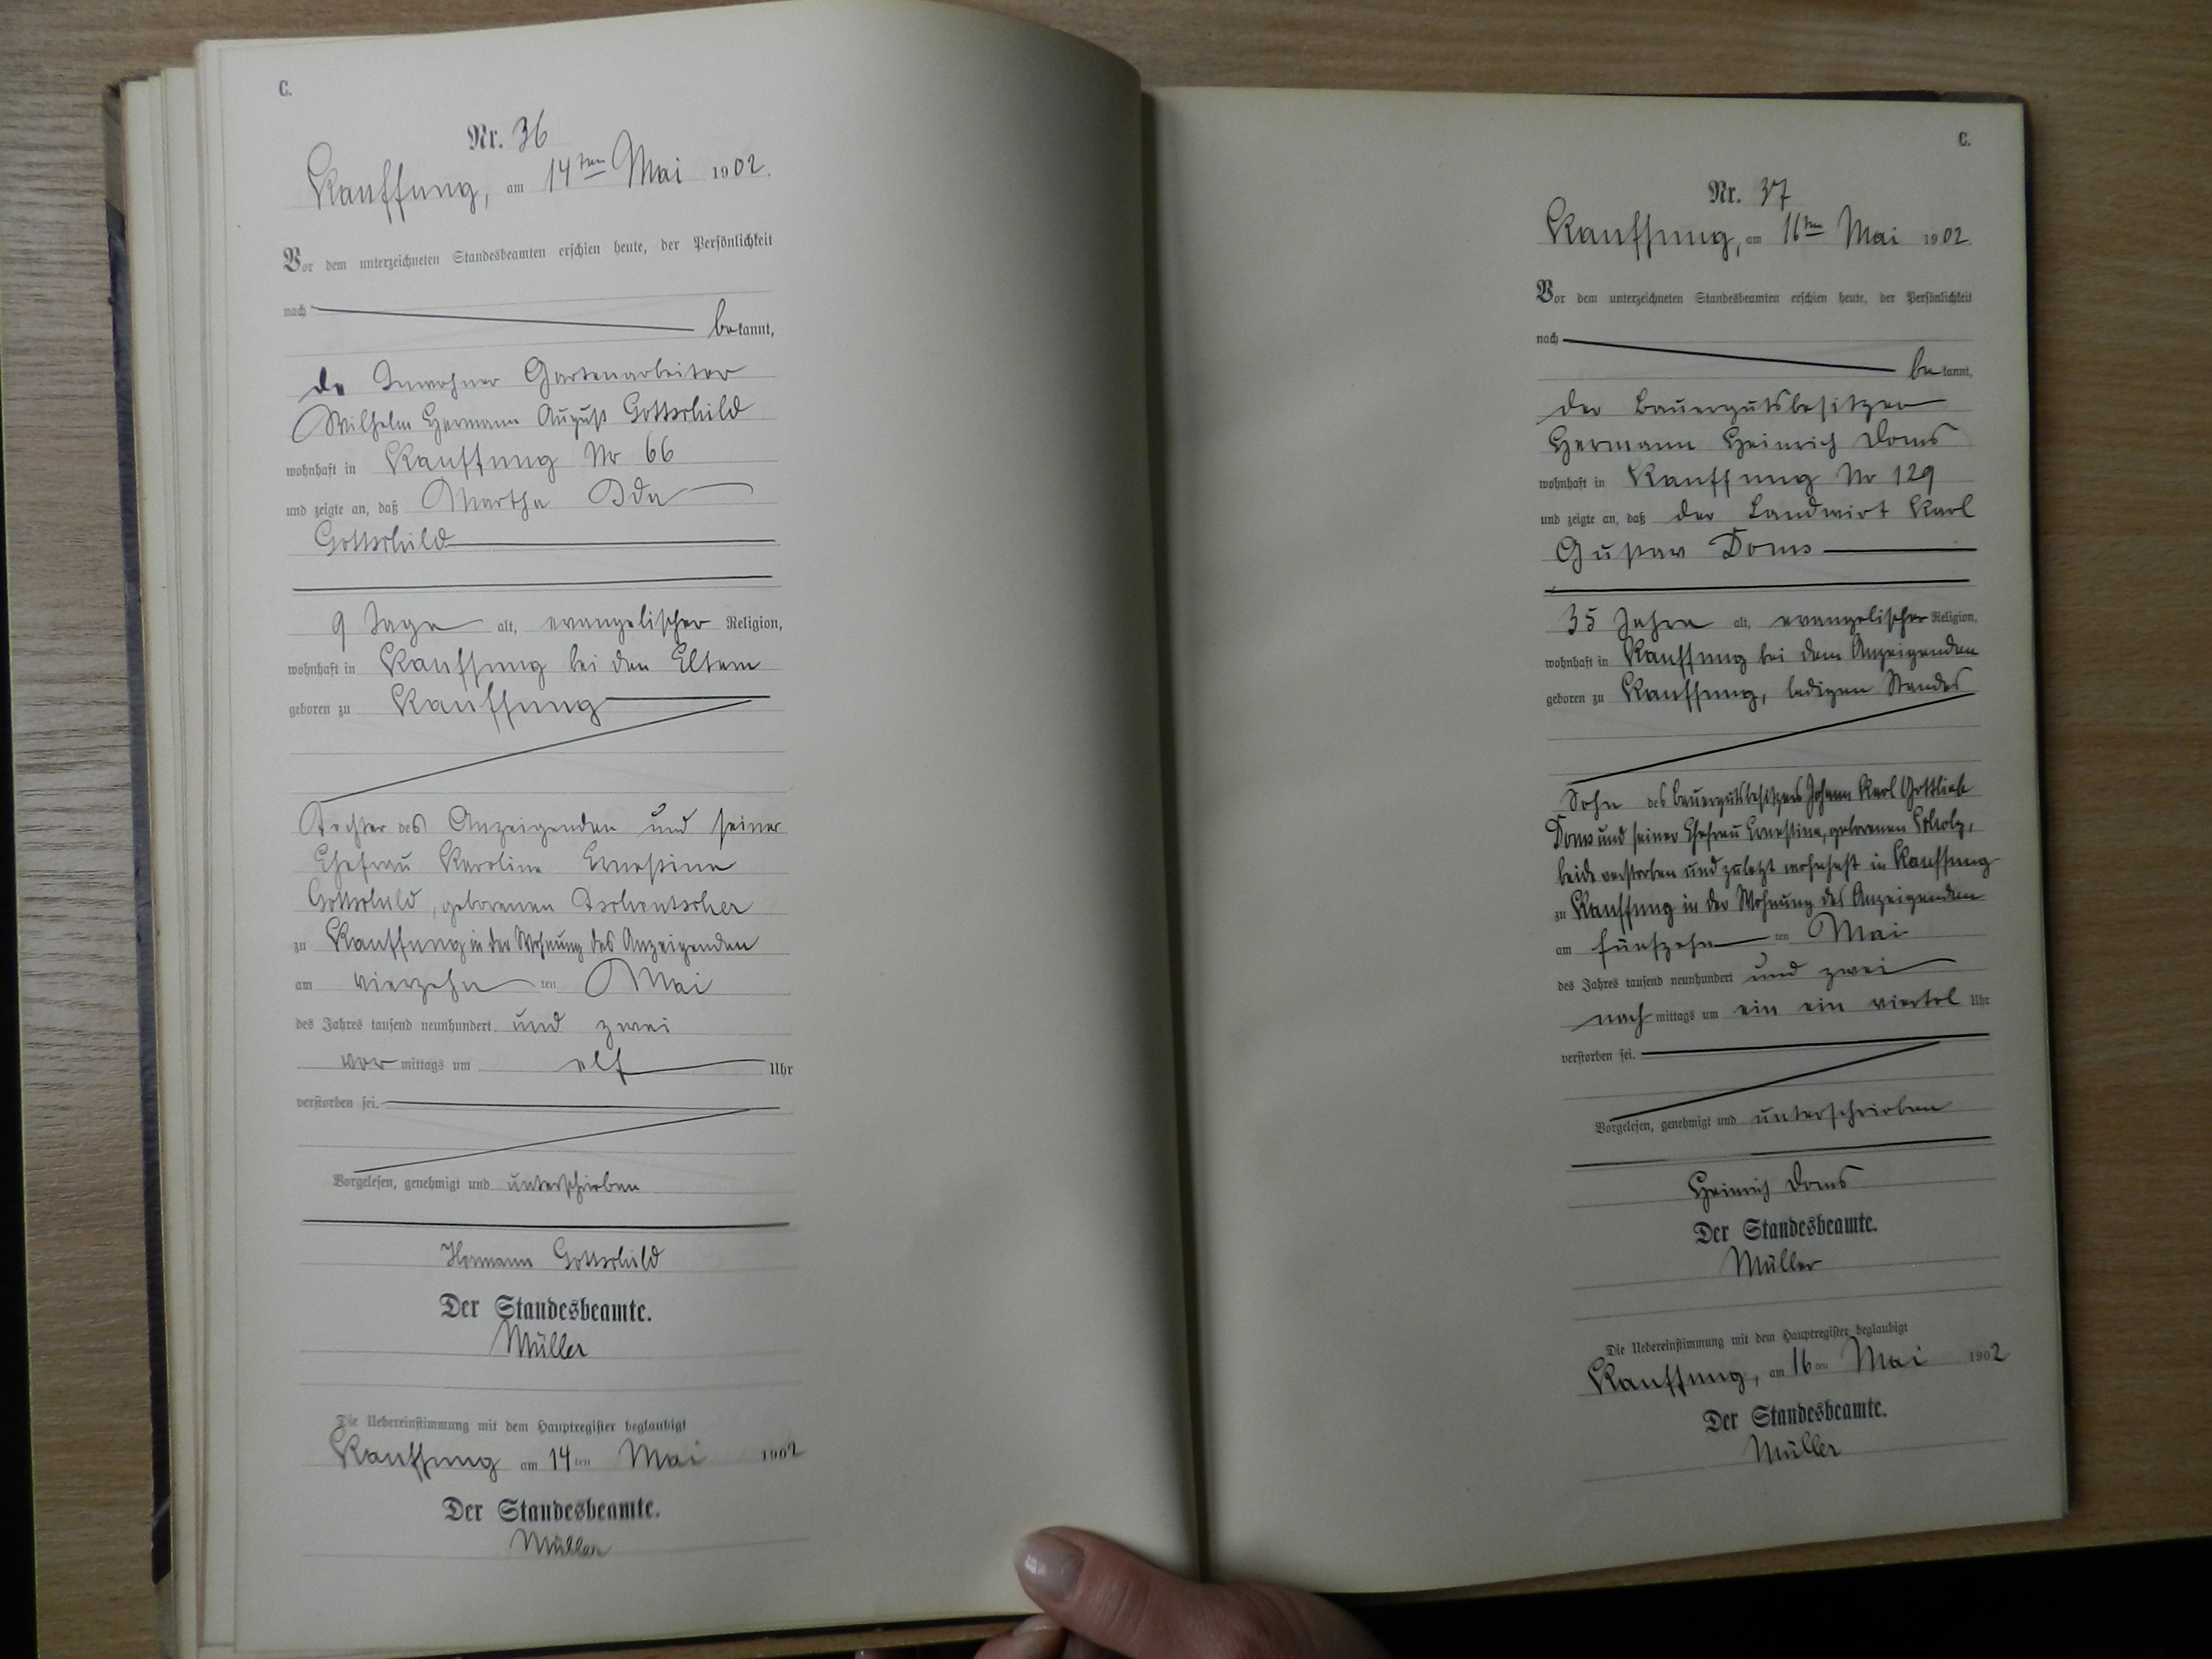 C.
Nr. 36
Kauffung, am 14ten Mai 1902.
Vor dem unterzeichneten Standesbeamten erschien heute, der Persönlichkeit
nach
bekannt,
de Inwohner Gartenarbeiter
Wilhelm Hermann August Gottschild
wohnhaft in Kauffung Nr 66
und zeigte an, daß Martha Ida
Gottschild
9 Tage alt, evangelischer Religion,
wohnhaft in Kauffung bei den Eltern
geboren zu Kauffung
Tochter des Anzeigenden und seiner
Ehefrau Karoline Ernestine
Gottschild, geborenen Tschentscher
zu Kauffung in der Wohnung des Anzeigenden
am vierzehn ten Mai
des Jahres tausend neunhundert und zwei
vor mittags um elf Uhr
verstorben sei.
Vorgelesen, genehmigt und unterschrieben
Hermann Gottschild
Der Standesbeamte.
Müller
Die Uebereinstimmung mit dem Hauptregister beglaubigt
Kauffung am 14ten Mai 1902
Der Standesbeamte.
Müller
C.
Nr. 37
Kauffung, am 16ten Mai 1902.
Vor dem unterzeichneten Standesbeamten erschien heute, der Persönlichkeit
nach
bekannt,
der Bauergutsbesitzer
Hermann Heinrich Doms
wohnhaft in Kauffung Nr 129
und zeigte an, daß der Landwirt Karl
Gustav Doms
35 Jahre alt, evangelischer Religion,
wohnhaft in Kauffung bei dem Anzeigenden
geboren zu Kauffung, ledigen Standes
Sohn des Bauergutsbesitzers Johann Karl Gottlieb
Doms und seiner Ehefrau Ernestine, geborenen Scholz,
beide verstorben und zuletzt wohnhaft in Kauffung
zu Kauffung in der Wohnung des Anzeigenden
am fünfzehn ten Mai
des Jahres tausend neunhundert und zwei
nach mittags um ein ein viertel Uhr
verstorben sei.
Vorgelesen, genehmigt und unterschrieben
Heinrich Doms
Der Standesbeamte.
Müller
Die Uebereinstimmung mit dem Hauptregister beglaubigt
Kauffung, am 16ten Mai 1902
Der Standesbeamte.
Müller